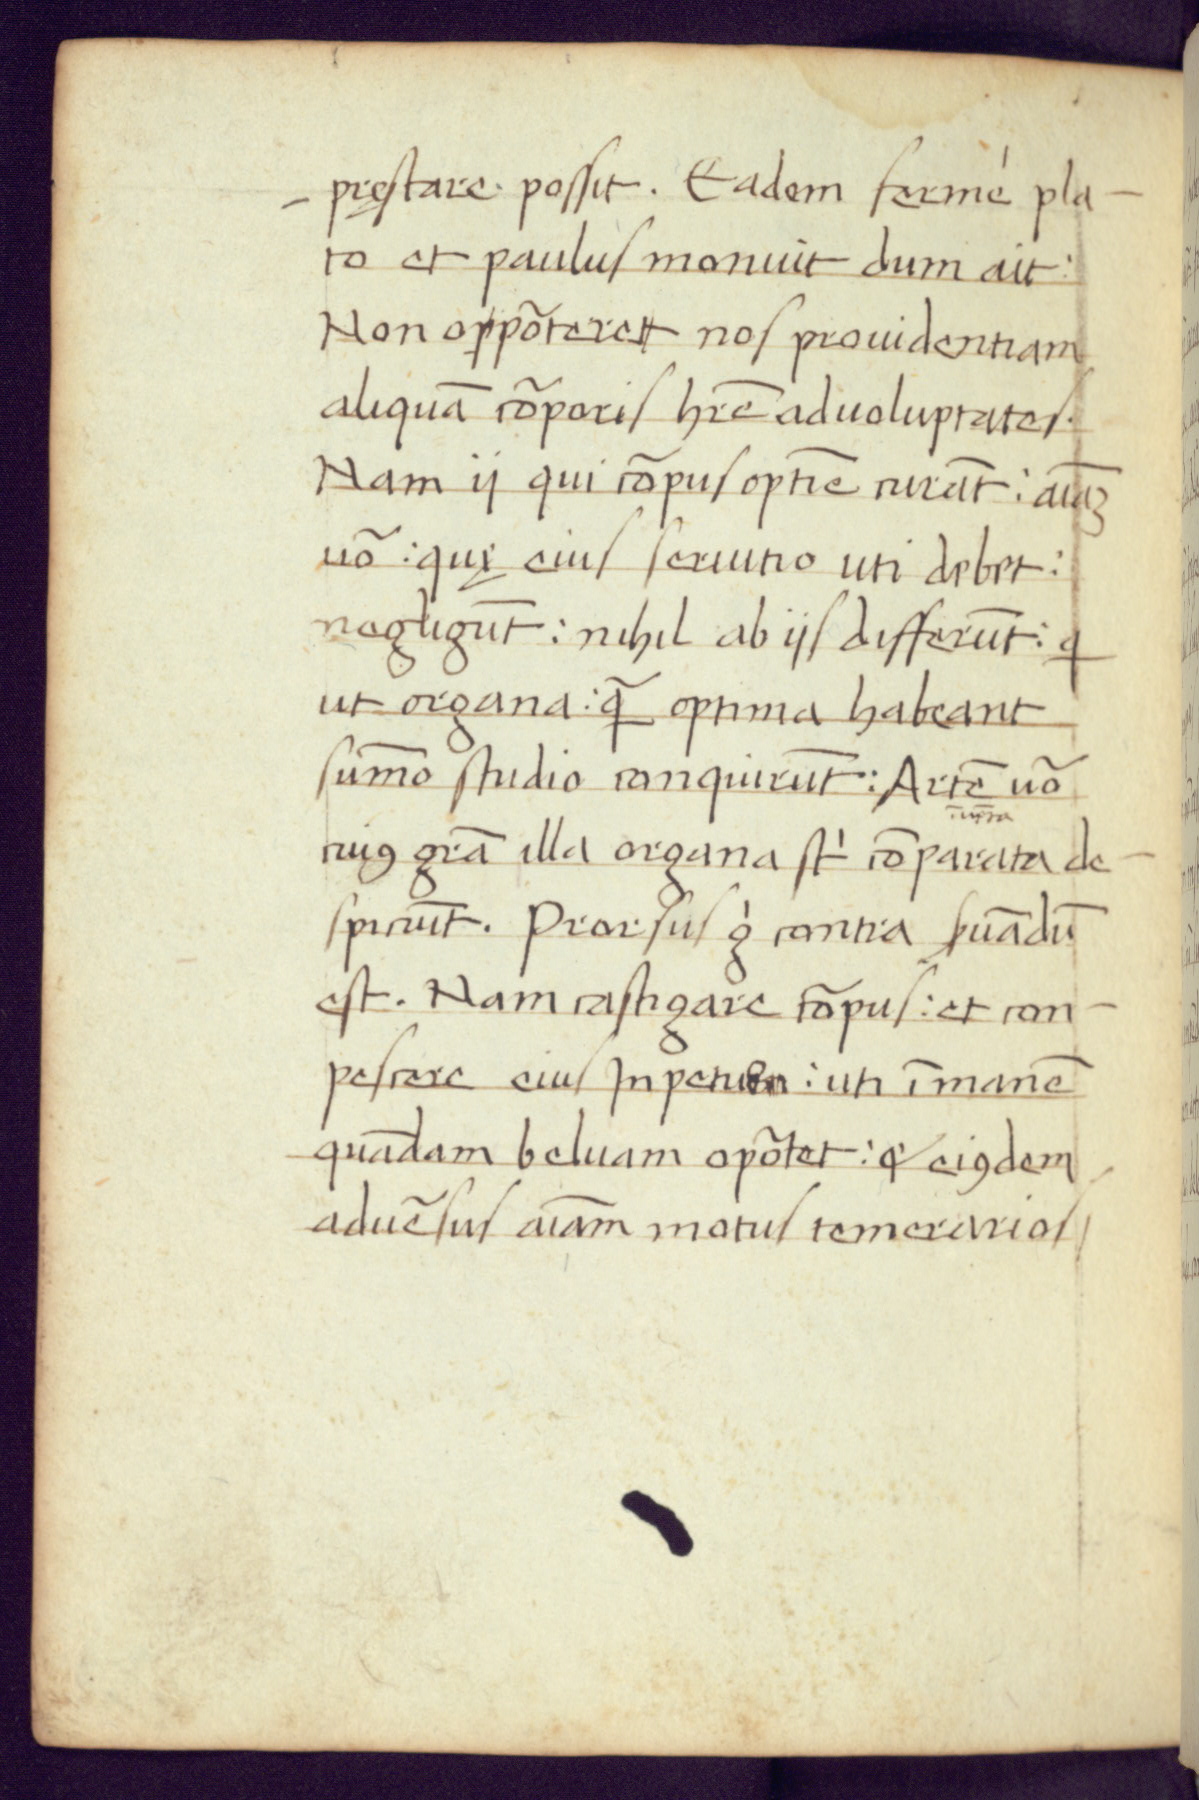 pręstare. possit. Eadem fermé pla-
to et paulus monuit dum ait:
Non oppõteret nos prouidentiam
aliquã cõporis hrẽ aduoluptates.
Nam ij qui cõpus optĩe curãt: aiãȝ
uõ: quę eius seruitio uti debet:
negligũt: nihil ab ijs differũt: q
ut organa: q̃ optima habeant
sum̃o studio conquirũt: Artẽ uõ
cuiꝯ grã illa organa st̍ cõparata de-
spiciũt. Prorsus g̍ contra suãdũ
est. Nam castigare cõpus: et con-
pescere eius Inpetum: uti ĩmanẽ
quãdam beluam opõtet: q eiꝯdem
aduẽsus aiãm motus temerarios